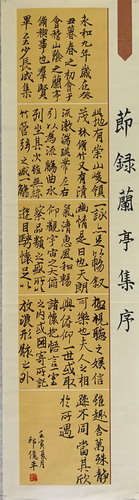 節錄蘭亭集序
永和九年歲在癸
丑暮春之初會于
會稽山陰之蘭亭
脩禊事也群賢
畢至少長咸集
此地有崇山峻領
茂林脩竹又有清
流激湍暎帶左右
引以為流觴曲水
列坐其次雖無絲
竹管弦之盛一觴
一詠亦足以暢敘
幽情是日也天朗
氣清惠風和暢
仰觀宇宙之大俯
察品類之盛所以
遊目騁懷足以
極視聽之娛信
可樂也夫人之相
與俯仰一世或取
之內或因寄所託
放浪形骸之外
雖趣舍萬殊靜
躁不同當其欣
於所遇